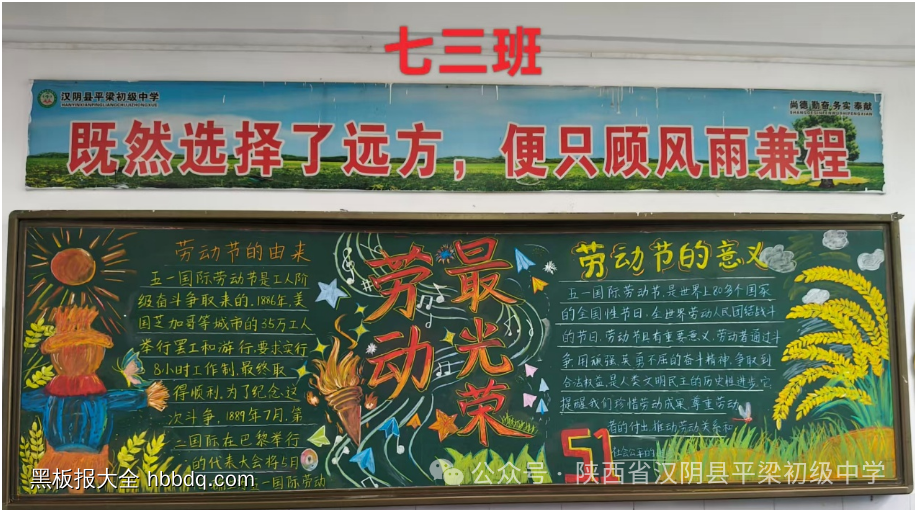 七三班
汉阴县平梁初级中学
尚德 勤奋 务实 奉献
既然选择了远方，便只顾风雨兼程
劳动节的由来
五一国际劳动节是工人阶
级奋斗争取来的，1886年，美
国芝加哥等城市的35万工人
举行罢工和游行，要求实行
8小时工作制，最终取
得顺利，为了纪念这
次斗争，1889年7月，第
二国际在巴黎举行
的代表大会将5月
五一国际劳动
劳动
最光荣
劳动节的意义
五一国际劳动节，是世界上80多个国家
的全国性节日，全世界劳动人民团结战斗
的节日，劳动节具有重要意义，劳动者通过斗
争，用顽强、英勇不屈的奋斗精神，争取到
合法权益，是人类文明民主的历史性进步，它
提醒我们珍惜劳动成果，尊重劳动
者的付出，推动劳动关系和
51
黑板报大全 hbbdq.com
公众号 · 陕西省汉阴县平梁初级中学